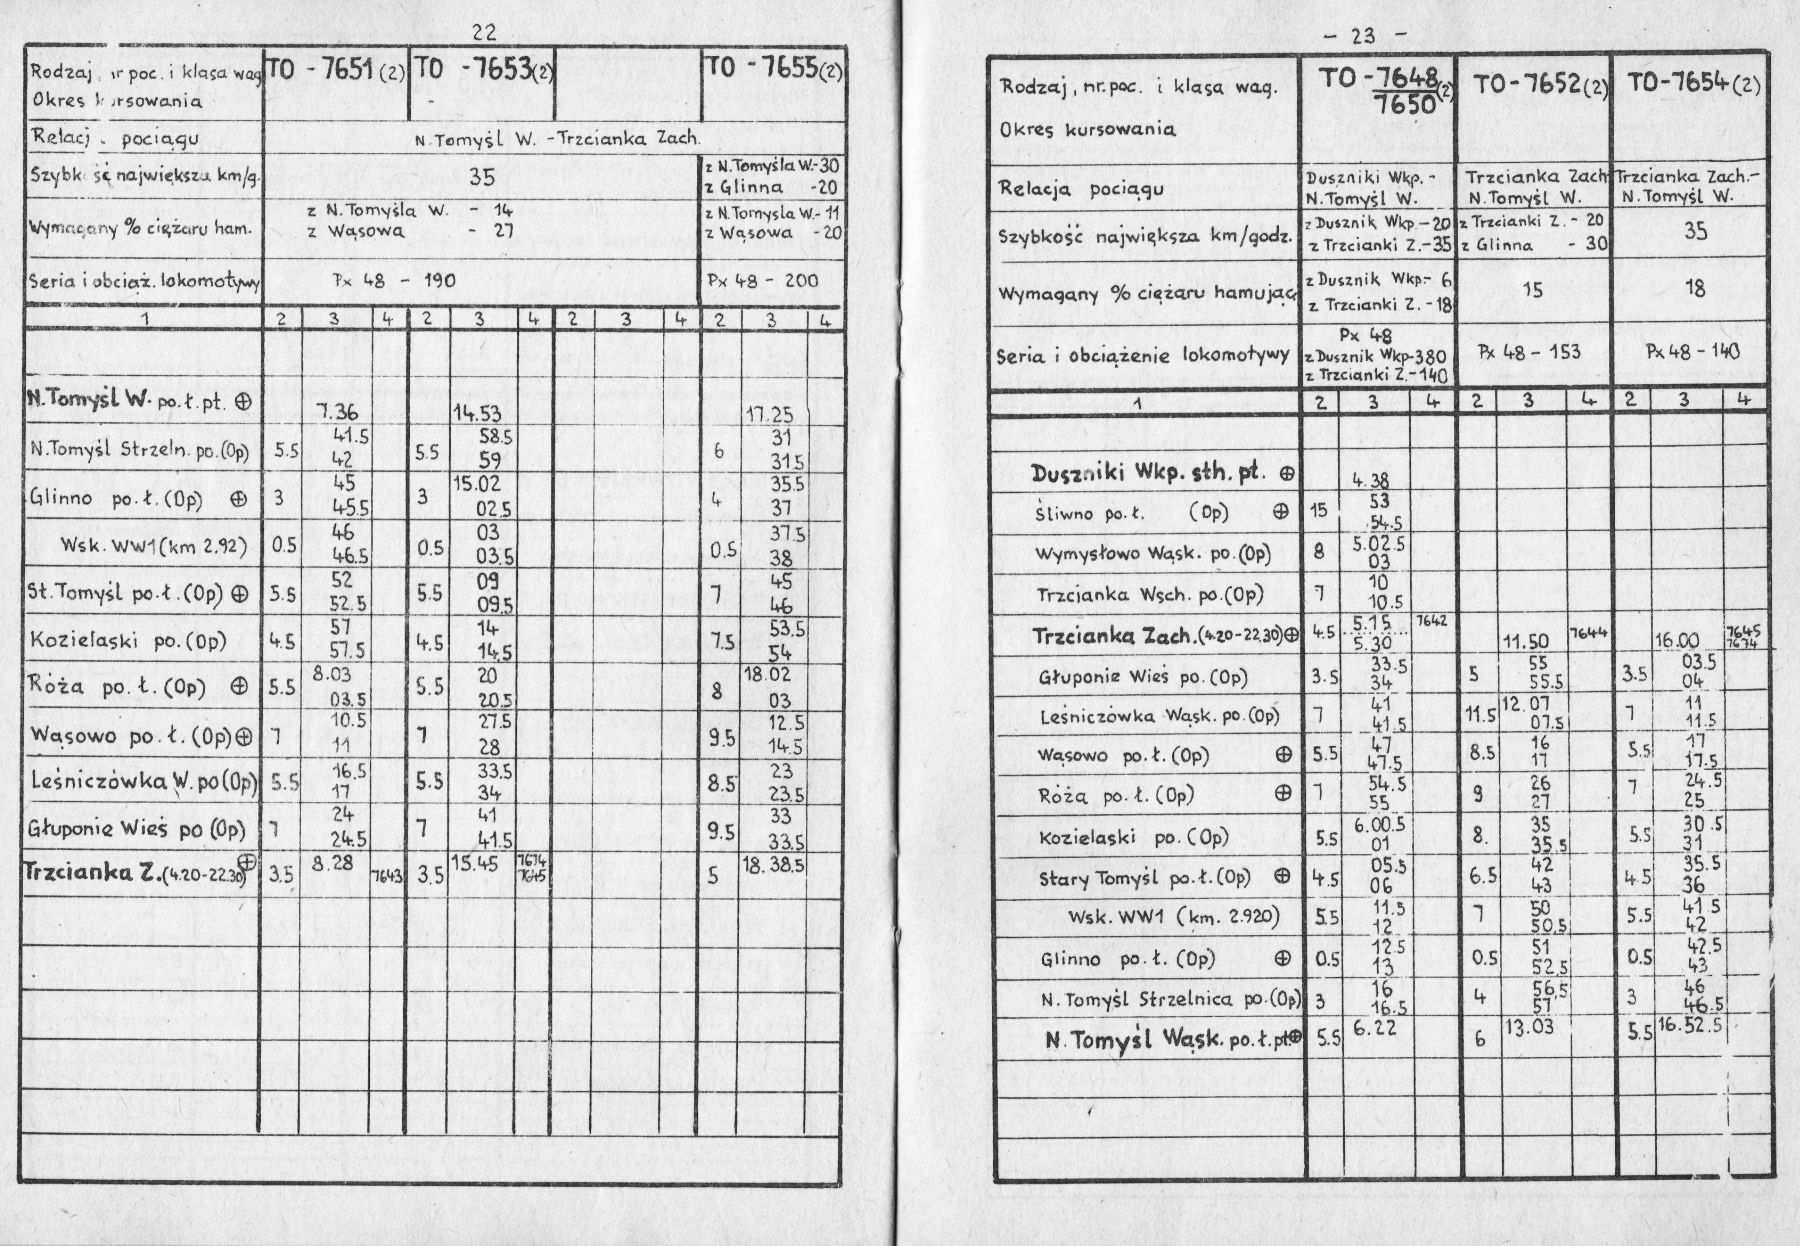 22
Rodzaj, nr poc. i klasa wag TO - 7651 (2) TO - 7653 (2) TO - 7655 (2)
Okres kursowania
Relacj. pociągu N. Tomyśl W. - Trzcianka Zach.
Szybkość największa km/g. 35 z N. Tomyśla W.-30
z Glinna -20
Wymagany % ciężaru ham. z N. Tomyśla W. - 14 z N. Tomyśla W.- 11
z Wąsowa - 27 z Wąsowa - 20
Seria i obciąż. lokomotywy Px 48 - 190 Px 48 - 200
1 2 3 4 2 3 4 2 3 4 2 3 4
N. Tomyśl W. po.ł.pt. ⊕ 7.36 14.53 17.25
41.5 58.5 31
N. Tomyśl Strzeln. po.(Op) 5.5 42 5.5 59 6 31.5
45 15.02 35.5
Glinno po.ł. (Op) ⊕ 3 45.5 3 02.5 4 37
46 03 37.5
Wsk. WW1 (km 2.92) 0.5 46.5 0.5 03.5 0.5 38
52 09 45
St. Tomyśl po.ł. (Op) ⊕ 5.5 52.5 5.5 09.5 7 46
57 14 53.5
Kozielaski po. (Op) 4.5 57.5 4.5 14.5 7.5 54
8.03 20 18.02
Róża po.ł. (Op) ⊕ 5.5 03.5 5.5 20.5 8 03
10.5 27.5 12.5
Wąsowo po.ł. (Op) ⊕ 7 11 7 28 9.5 14.5
16.5 33.5 23
Leśniczówka W. po (Op) 5.5 17 5.5 34 8.5 23.5
24 41 33
Głuponie Wieś po (Op) 7 24.5 7 41.5 9.5 33.5
Trzcianka Z. (4.20-22.30) ⊕ 3.5 8.28 7643 3.5 15.45 7674 7645 5 18.38.5
- 23 -
Rodzaj, nr. poc. i klasa wag. TO - 7648/7650 (2) TO - 7652 (2) TO - 7654 (2)
Okres kursowania
Relacja pociągu Duszniki Wkp. - Trzcianka Zach Trzcianka Zach.-
N. Tomyśl W. N. Tomyśl W. N. Tomyśl W.
Szybkość największa km/godz. z Dusznik Wkp.-20 z Trzcianki Z. - 20 35
z Trzcianki Z.-35 z Glinna - 30
Wymagany % ciężaru hamując z Dusznik Wkp.- 6 15 18
z Trzcianki Z. -18
Seria i obciążenie lokomotywy Px 48 Px 48 - 153 Px 48 - 140
z Dusznik Wkp-380
z Trzcianki Z.-140
1 2 3 4 2 3 4 2 3 4
Duszniki Wkp. sth. pt. ⊕ 4.38
53
Śliwno po.ł. (Op) ⊕ 15 54.5
5.02.5
Wymysłowo Wąsk. po. (Op) 8 03
10
Trzcianka Wsch. po. (Op) 7 10.5
5.15 7642
Trzcianka Zach. (4.20-22.30) ⊕ 4.5 5.30 11.50 7644 16.00 7645 7674
33.5 55 03.5
Głuponie Wieś po. (Op) 3.5 34 5 55.5 3.5 04
41 12.07 11
Leśniczówka Wąsk. po. (Op) 7 41.5 11.5 07.5 7 11.5
47 16 17
Wąsowo po.ł. (Op) ⊕ 5.5 47.5 8.5 17 5.5 17.5
54.5 26 24.5
Róża po.ł. (Op) ⊕ 7 55 9 27 7 25
6.00.5 35 30.5
Kozielaski po. (Op) 5.5 01 8. 35.5 5.5 31
05.5 42 35.5
Stary Tomyśl po.ł. (Op) ⊕ 4.5 06 6.5 43 4.5 36
11.5 50 41.5
Wsk. WW1 (km. 2.920) 5.5 12 7 50.5 5.5 42
12.5 51 42.5
Glinno po.ł. (Op) ⊕ 0.5 13 0.5 52.5 0.5 43
16 56.5 46
N. Tomyśl Strzelnica po. (Op) 3 16.5 4 57 3 46.5
N. Tomyśl Wąsk. po.ł.pt. ⊕ 5.5 6.22 6 13.03 5.5 16.52.5